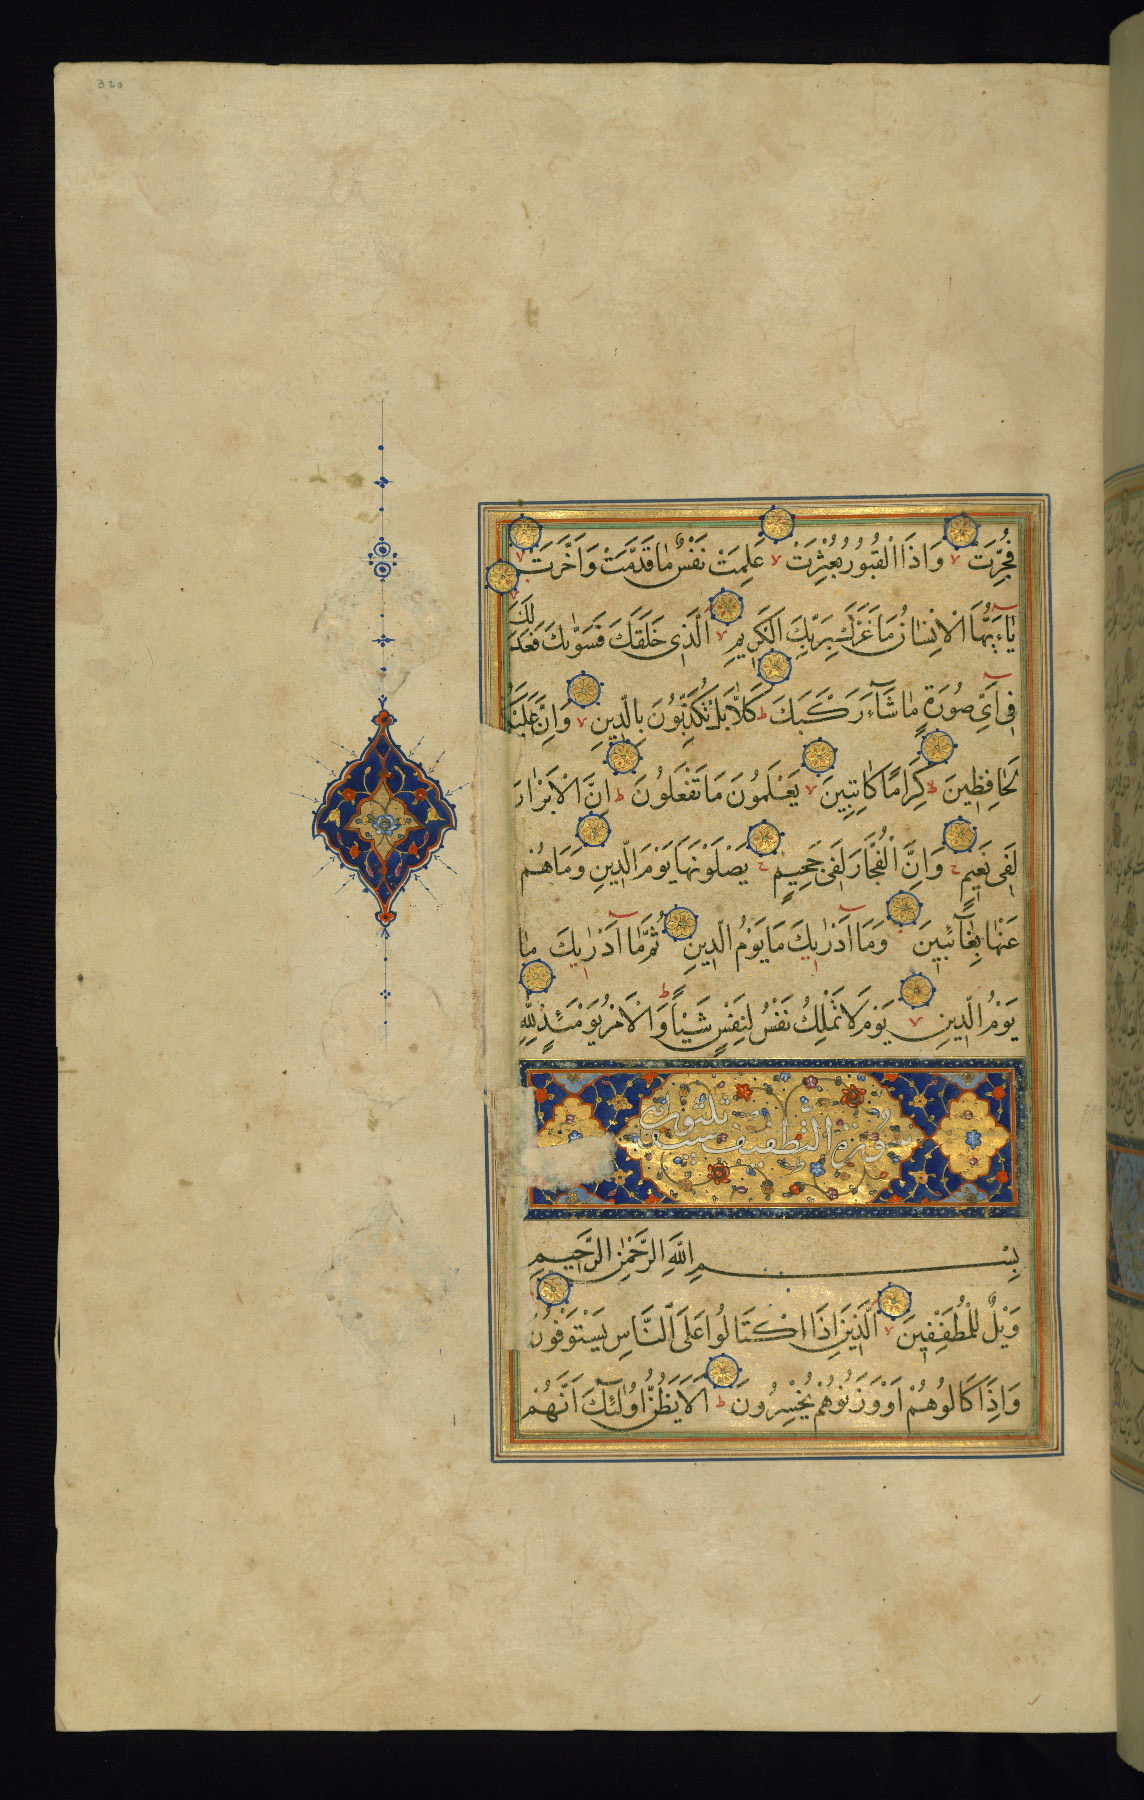 320
فُجِّرَتْ وَاِذَا الْقُبُورُ بُعْثِرَتْ عَلِمَتْ نَفْسٌ مَا قَدَّمَتْ وَاَخَّرَتْ
يَاءَيُّهَا الْاِنْسَانُ مَا غَرَّكَ بِرَبِّكَ الْكَرِيمِ الَّذِى خَلَقَكَ فَسَوّٰيكَ فَعَدَلَكَ
فِى اَىِّ صُورَةٍ مَا شَآءَ رَكَّبَكَ كَلَّا بَلْ تُكَذِّبُونَ بِالدِّينِ وَاِنَّ عَلَيْكُمْ
لَحَافِظِينَ كِرَامًا كَاتِبِينَ يَعْلَمُونَ مَا تَفْعَلُونَ اِنَّ الْاَبْرَارَ
لَفِى نَعِيمٍ وَاِنَّ الْفُجَّارَ لَفِى جَحِيمٍ يَصْلَوْنَهَا يَوْمَ الدِّينِ وَمَا هُمْ
عَنْهَا بِغَآئِبِينَ وَمَا اَدْرٰيكَ مَا يَوْمُ الدِّينِ ثُمَّ مَا اَدْرٰيكَ مَا
يَوْمُ الدِّينِ يَوْمَ لَا تَمْلِكُ نَفْسٌ لِنَفْسٍ شَيْئًا وَالْاَمْرُ يَوْمَئِذٍ لِلّٰهِ
سورة التطفيف ست وثلثون اية
بِسْمِ اللّٰهِ الرَّحْمٰنِ الرَّحِيمِ
وَيْلٌ لِلْمُطَفِّفِينَ الَّذِينَ اِذَا اكْتَالُوا عَلَى النَّاسِ يَسْتَوْفُونَ
وَاِذَا كَالُوهُمْ اَوْ وَزَنُوهُمْ يُخْسِرُونَ اَلَا يَظُنُّ اُولٰئِكَ اَنَّهُمْ